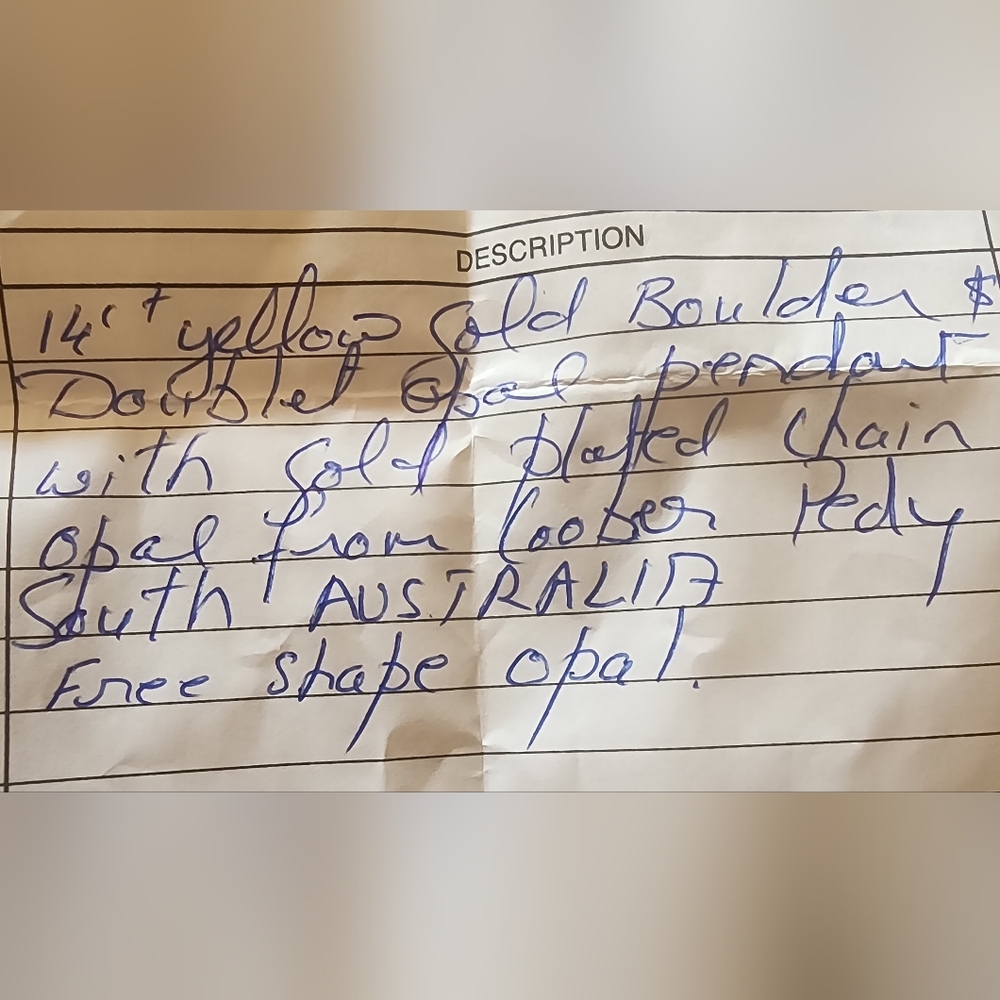 DESCRIPTION
14ct yellow Gold Boulder $
Doublet Opal pendant
with Gold plated Chain
Opal from Coober Pedy
South AUSTRALIA
Free shape opal.